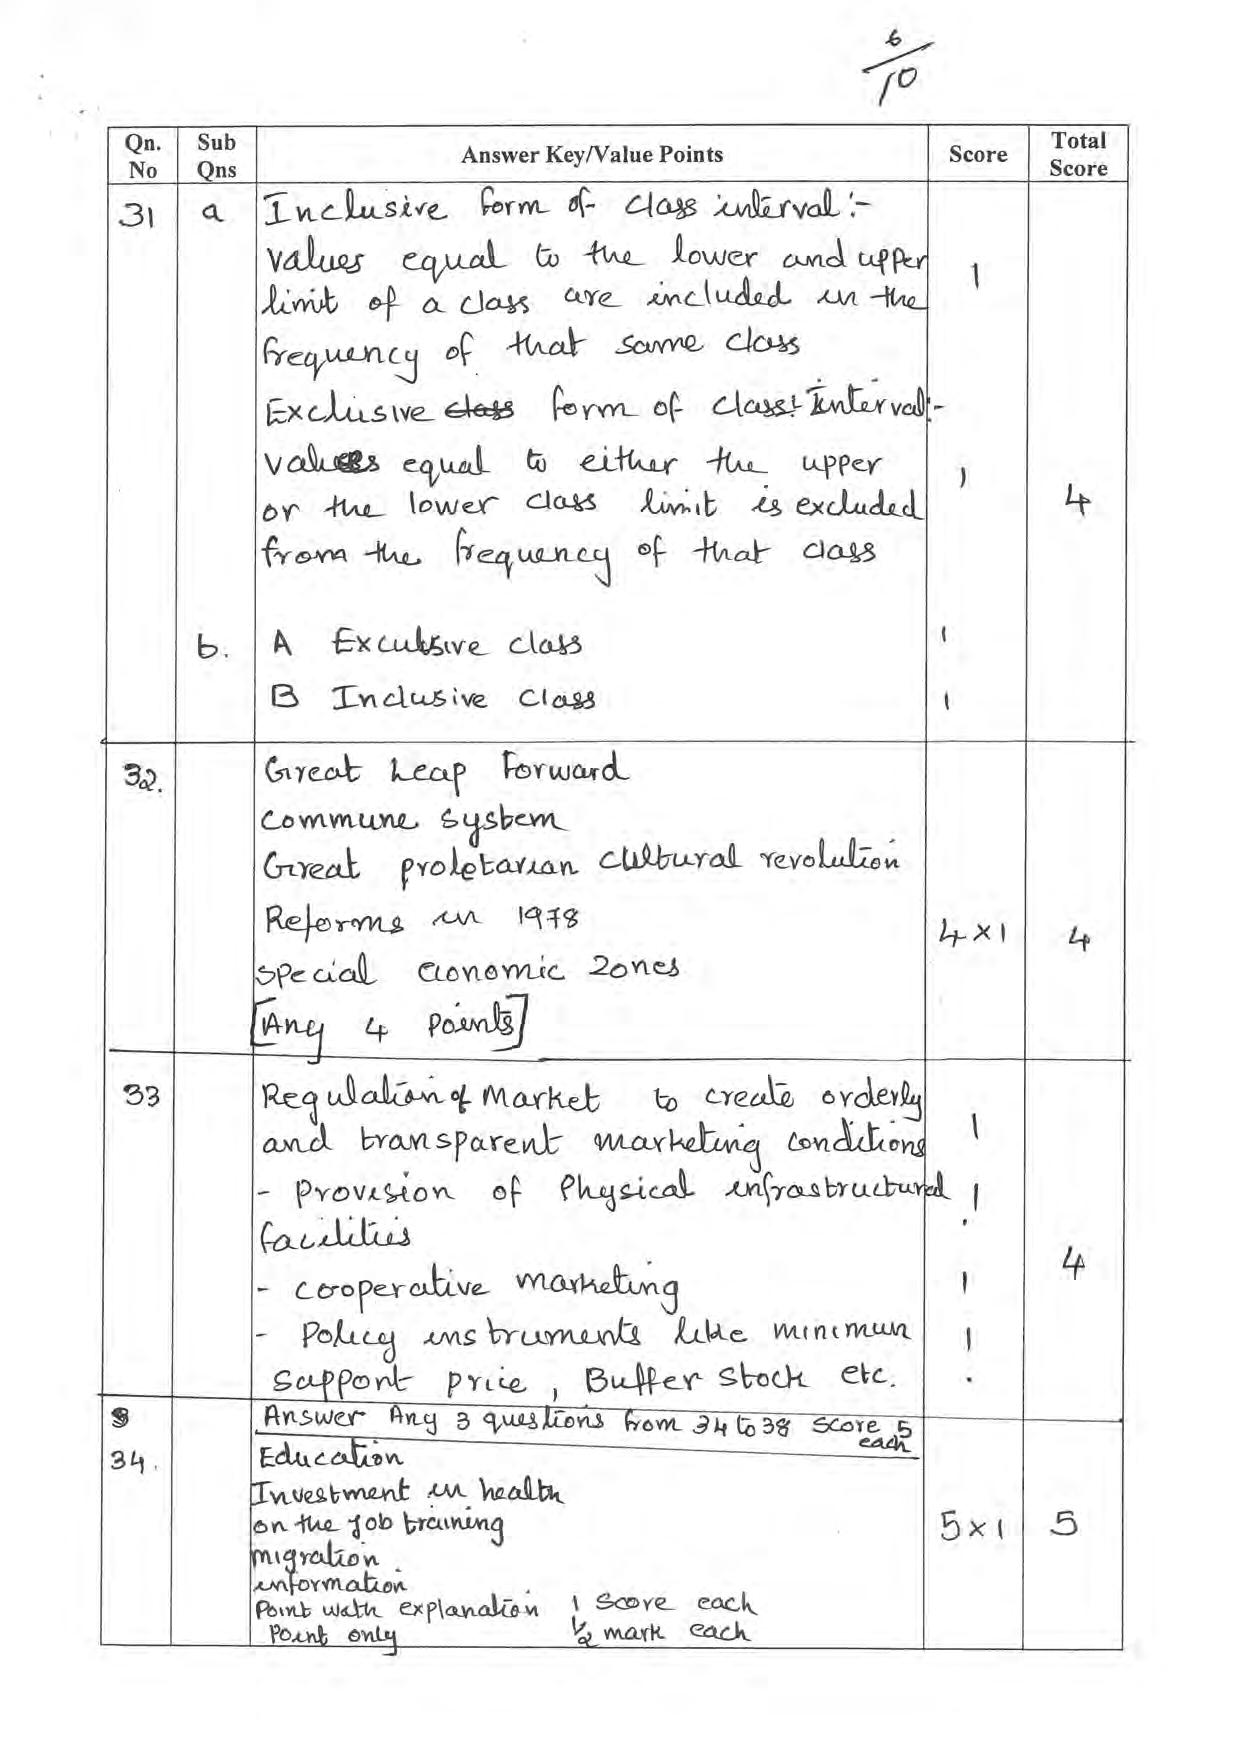 6/10
Qn. No | Sub Qns | Answer Key/Value Points | Score | Total Score
31 a Inclusive form of class interval :-
values equal to the lower and upper
limit of a class are included in the 1
frequency of that same class
Exclusive class form of class: Interval:-
values equal to either the upper 1
or the lower class limit is excluded 4
from the frequency of that class
b. A Exculsive class 1
B Inclusive class 1
32. Great Leap Forward
Commune System
Great proletarian cultural revolution
Reforms in 1978 4 x 1 4
Special Economic Zones
[Any 4 points]
33 Regulation of Market to create orderly
and transparent marketing conditions 1
- Provision of Physical infrastructured 1
facilities 4
- cooperative marketing 1
- Policy instruments like minimum 1
support price, Buffer stock etc.
Answer Any 3 questions from 34 to 38 Score 5 each
34. Education
Investment in health
on the job training 5 x 1 5
migration
information
Point with explanation 1 Score each
Point only ½ mark each